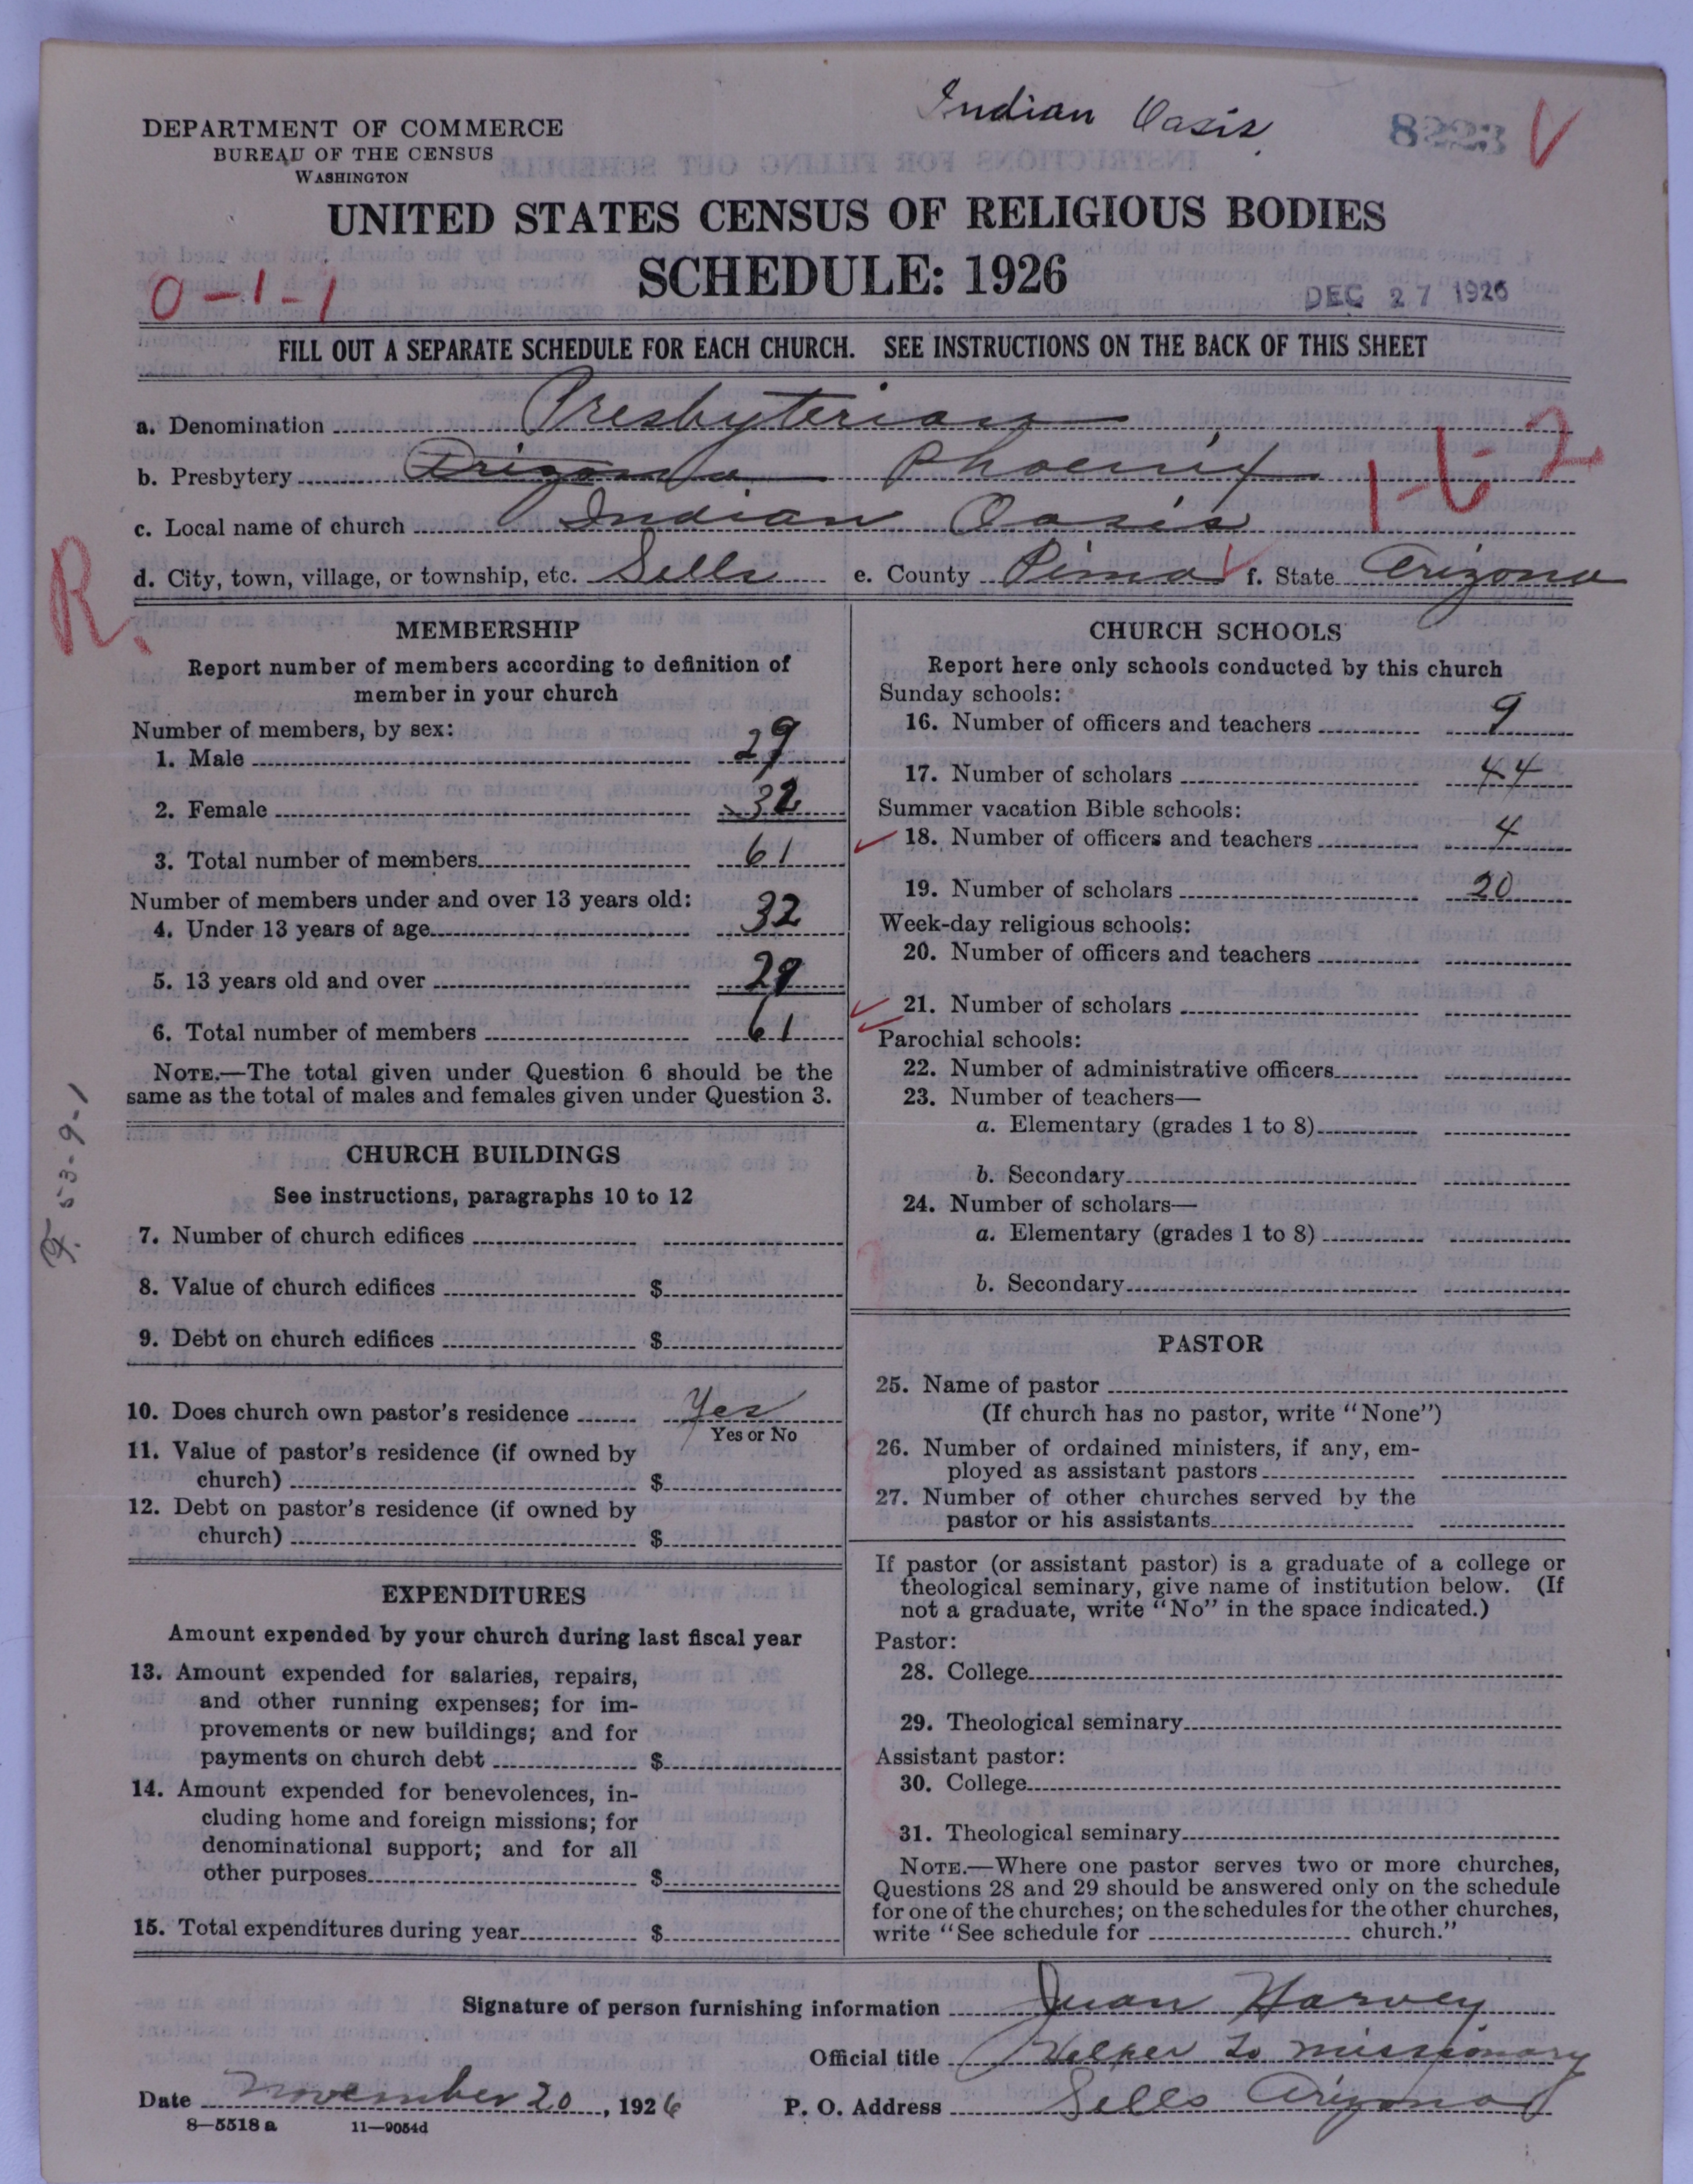 Indian Oasis.
8223 V
DEPARTMENT OF COMMERCE
BUREAU OF THE CENSUS
WASHINGTON
UNITED STATES CENSUS OF RELIGIOUS BODIES
SCHEDULE: 1926
0-1-1
DEC 27 1926
FILL OUT A SEPARATE SCHEDULE FOR EACH CHURCH. SEE INSTRUCTIONS ON THE BACK OF THIS SHEET
a. Denomination Presbyterian
b. Presbytery Arizona Phoenix
c. Local name of church Indian Oasis
d. City, town, village, or township, etc. Sells e. County Pima f. State Arizona
R.
MEMBERSHIP
Report number of members according to definition of
member in your church
Number of members, by sex:
1. Male 29
2. Female 32
3. Total number of members 61
Number of members under and over 13 years old:
4. Under 13 years of age 32
5. 13 years old and over 29
6. Total number of members 61
NOTE.—The total given under Question 6 should be the
same as the total of males and females given under Question 3.
CHURCH BUILDINGS
See instructions, paragraphs 10 to 12
7. Number of church edifices
8. Value of church edifices $
9. Debt on church edifices $
10. Does church own pastor's residence Yes
Yes or No
11. Value of pastor's residence (if owned by
church) $
12. Debt on pastor's residence (if owned by
church) $
EXPENDITURES
Amount expended by your church during last fiscal year
13. Amount expended for salaries, repairs,
and other running expenses; for im-
provements or new buildings; and for
payments on church debt $
14. Amount expended for benevolences, in-
cluding home and foreign missions; for
denominational support; and for all
other purposes $
15. Total expenditures during year $
CHURCH SCHOOLS
Report here only schools conducted by this church
Sunday schools:
16. Number of officers and teachers 9
17. Number of scholars 44
Summer vacation Bible schools:
18. Number of officers and teachers 4
19. Number of scholars 20
Week-day religious schools:
20. Number of officers and teachers
21. Number of scholars
Parochial schools:
22. Number of administrative officers
23. Number of teachers—
a. Elementary (grades 1 to 8)
b. Secondary
24. Number of scholars—
a. Elementary (grades 1 to 8)
b. Secondary
PASTOR
25. Name of pastor
(If church has no pastor, write "None")
26. Number of ordained ministers, if any, em-
ployed as assistant pastors
27. Number of other churches served by the
pastor or his assistants
If pastor (or assistant pastor) is a graduate of a college or
theological seminary, give name of institution below. (If
not a graduate, write "No" in the space indicated.)
Pastor:
28. College
29. Theological seminary
Assistant pastor:
30. College
31. Theological seminary
NOTE.—Where one pastor serves two or more churches,
Questions 28 and 29 should be answered only on the schedule
for one of the churches; on the schedules for the other churches,
write "See schedule for church."
Signature of person furnishing information Juan Harvey
Official title Helper to missionary
Date November 20, 1926 P. O. Address Sells Arizona
8—5518 a 11—9054d
53-9-1